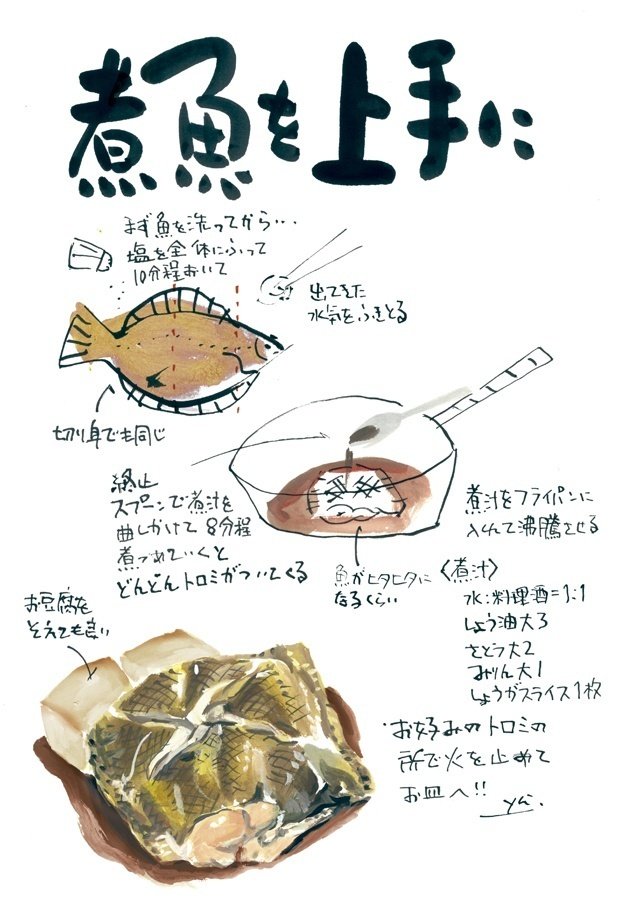 煮魚を上手に
まず魚を洗ってから...
塩を全体にふって
10分程おいて
出てきた
水気をふきとる
切り身でも同じ
終止
スプーンで煮汁を
曲しかけて 8分程
煮つめていくと
どんどんトロミがついてくる
煮汁をフライパンに
入れて沸騰させる
魚がヒタヒタに
なるくらい
〈煮汁〉
水:料理酒=1:1
しょう油大3
さとう大2
みりん大1
しょうがスライス1枚
お豆腐を
そえても良い
・お好みのトロミの
所で火を止めて
お皿へ!!